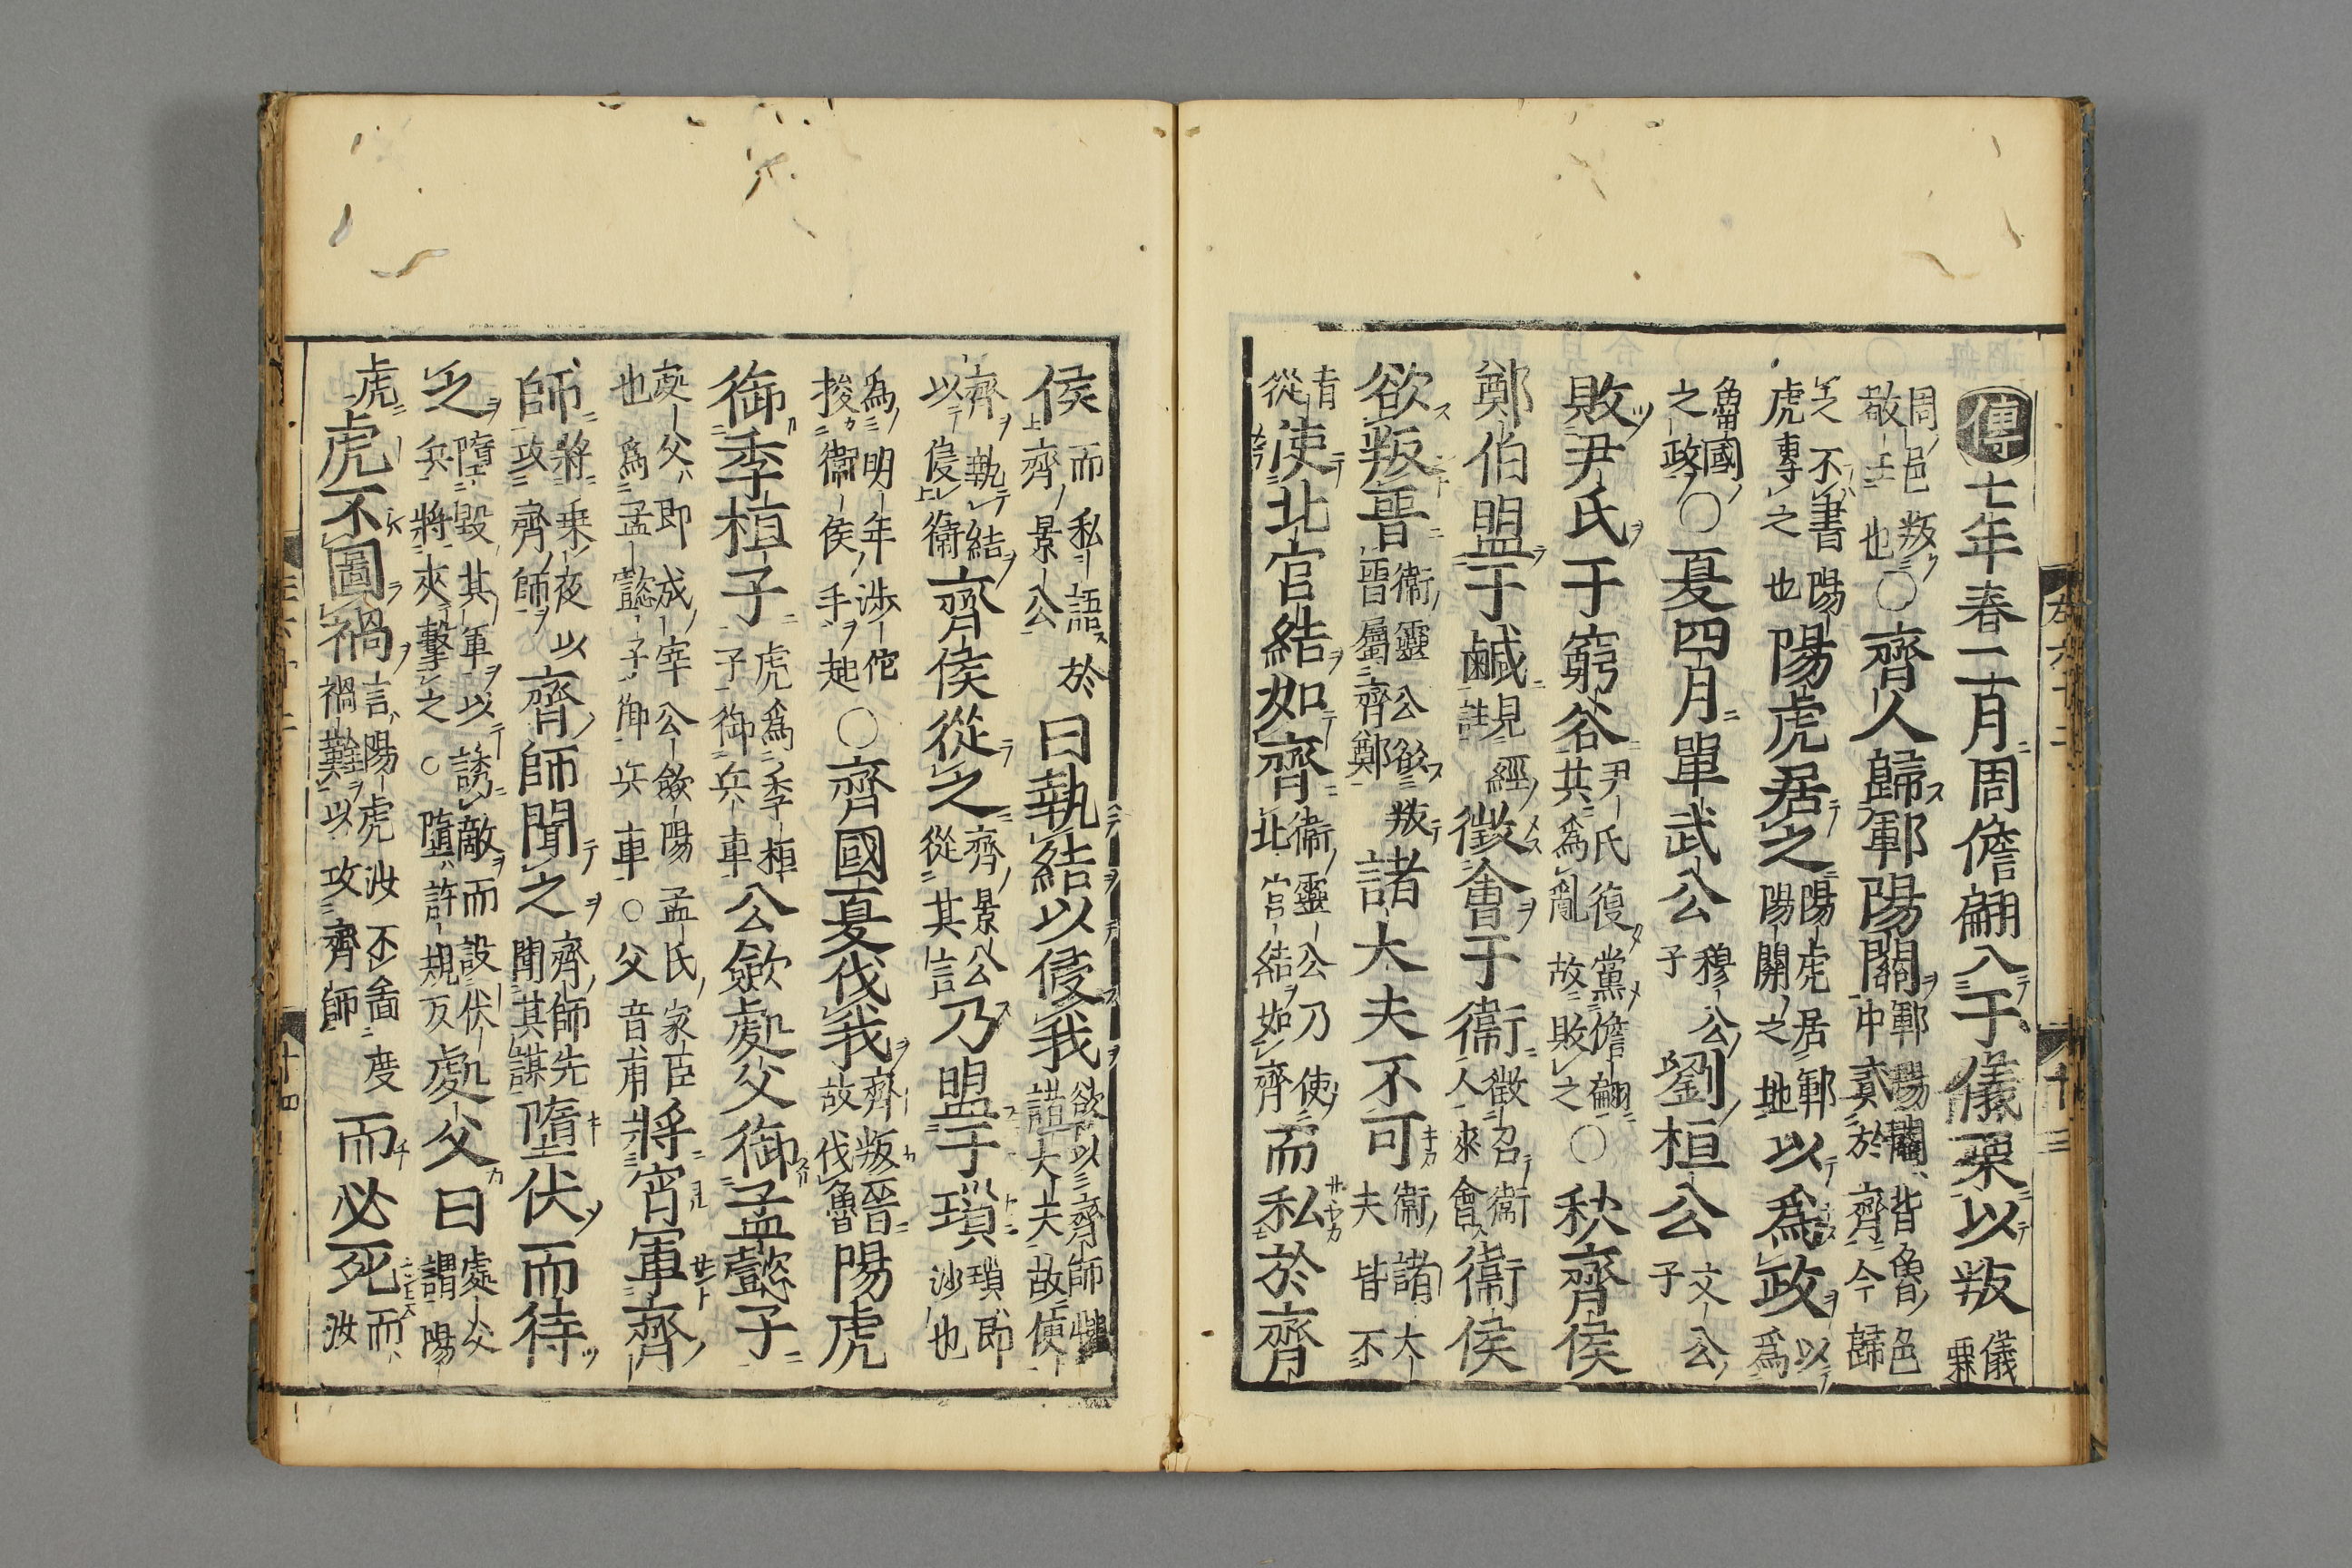 傳七年春二月周儋翩入于儀栗以叛儀栗
周邑叛敬王也○齊人歸鄆陽關鄆陽關皆魯邑中貳於齊今歸
之不書陽虎專之也陽虎居之陽虎居鄆陽關之地以爲政以爲
魯國之政○夏四月單武公穆公子劉桓公文公子
敗尹氏于窮谷尹氏復黨儋翩共爲亂故敗之○秋齊侯
鄭伯盟于鹹見經註徵會于衞徵召衞人來會衞侯
欲叛晉衞靈公欲叛晉屬齊鄭諸大夫不可衞諸大夫皆不
肯從使北宮結如齊衞靈公乃使北宮結如齊而私於齊
侯而私語於齊景公曰執結以侵我欲以齊師懼諸大夫故使
齊執結以侵衞齊侯從之齊景公從其言乃盟于瑣瑣即沙也
爲明年涉佗捘衞侯手起○齊國夏伐我齊叛晉故伐魯陽虎
御季桓子虎爲季桓子御兵車公斂處父御孟懿子
處父即成宰公斂陽孟氏家臣也爲孟懿子御兵車○父音甫將宵軍齊
師將乘夜以攻齊師齊師聞之齊師先聞其謀墮伏而待
之墮毀其軍以誘敵而設伏兵將夾擊之○墮許規反處父曰處父謂陽
虎虎不圖禍言陽虎汝不啚度禍難以攻齊師而必死而汝